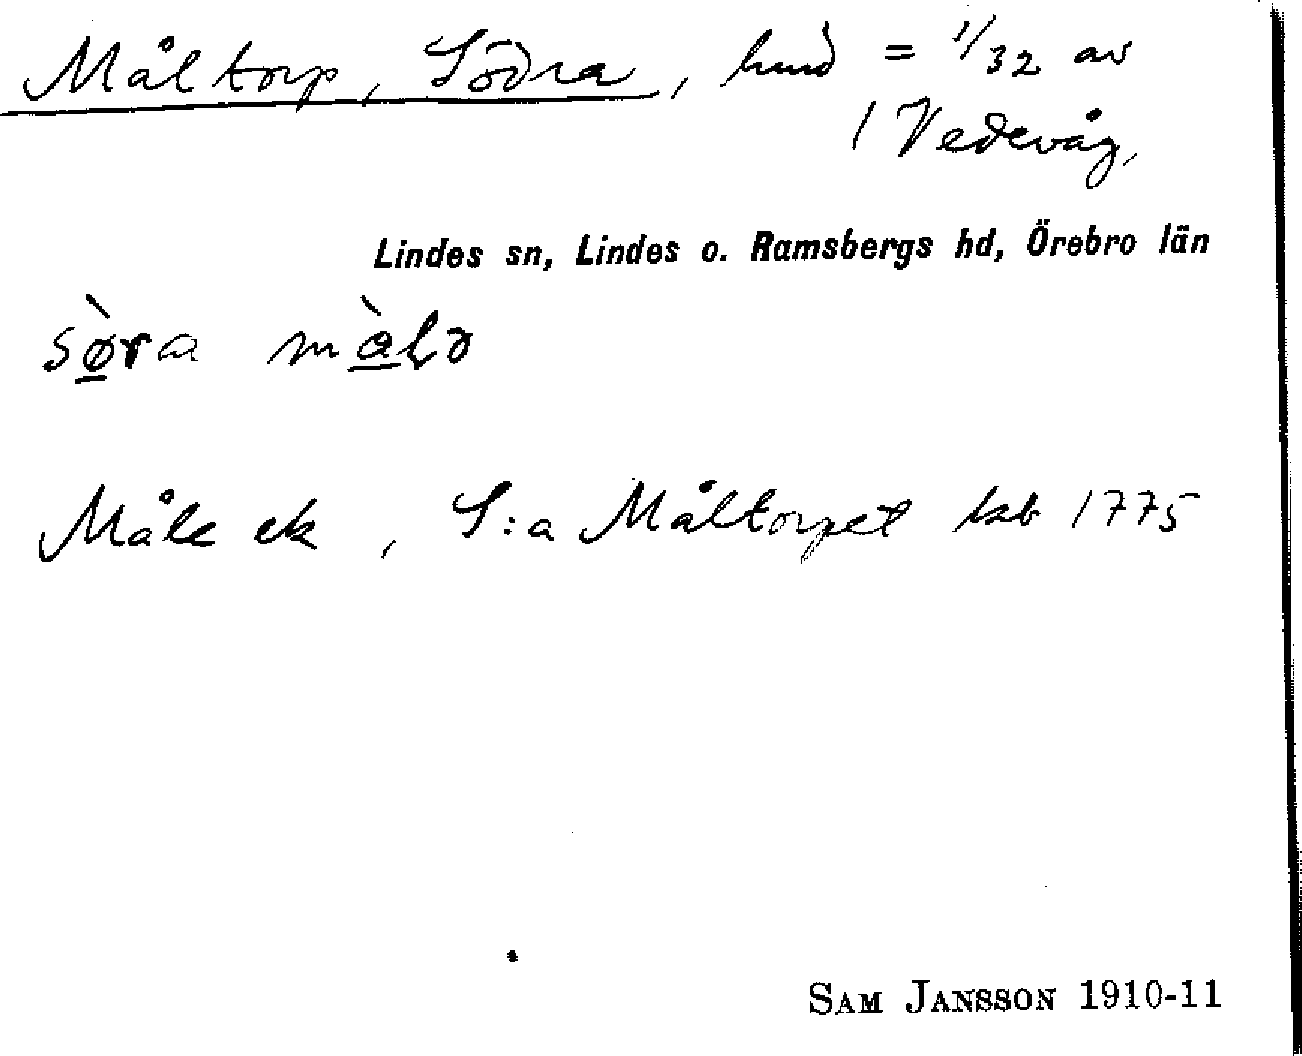 Måltorp, Södra, hmd = 1/32 av
1 Vedevåg,
Lindes sn, Lindes o. Ramsbergs hd, Örebro län
sø̀ra
Måle ek, S:a Måltorpet kb 1775
SAM JANSSON 1910-11